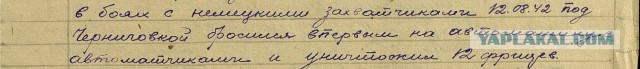 в боях с немецкими захватчиками 12.08.42 под
Черниговкой бросился впервым на
автоматчиками и уничтожил 12 фрицев.
YAPLAKAL.COM